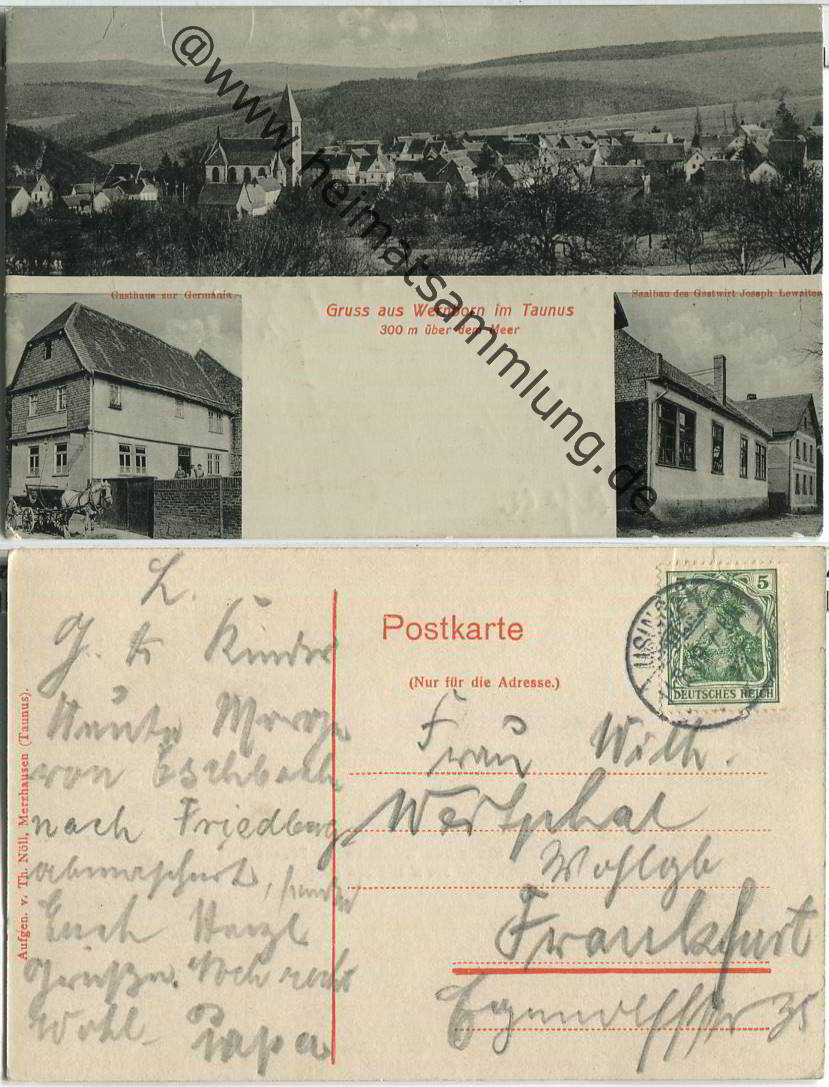 @www.heimatsammlung.de
Gasthaus zur Germania
Gruss aus Wernborn im Taunus
300 m über dem Meer
Saalbau des Gastwirt Joseph Lewalter
Postkarte
(Nur für die Adresse.)
5
DEUTSCHES REICH
USINGEN
Aufgen. v. Th. Nöll, Merzhausen (Taunus).
L.
Kinder
Heute
von Eschbach
nach Friedberg
abmarschirt, sendet
Euch Herzl
Grüße. Noch recht
Wohl
Papa
Frau Wilh.
Westphal
Wohlgb
Frankfurt
35